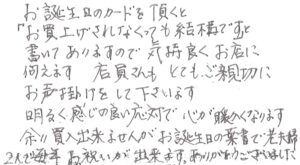 お誕生日のカードを頂くと
「お買上げされなくても結構ですと
書いてありますので気持良くお店に
伺えます 店員さんも とてもご親切に
お声掛けをして下さいます
明るく感じの良い応対で心が暖くなります
余り買入出来ませんがお誕生日の葉書で老夫婦
2人で毎年お祝いが出来ます、ありがとうございました、